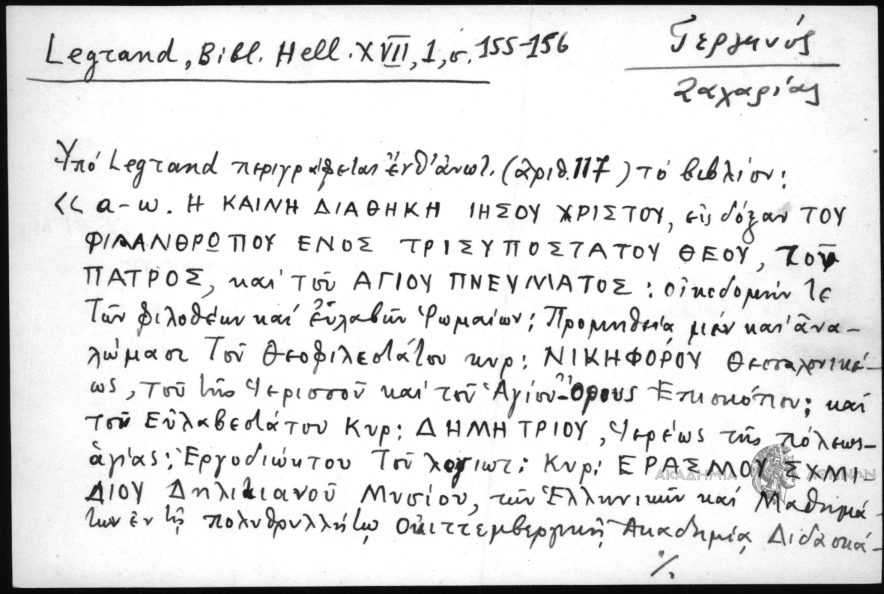 Legrand, Bibl. Hell. XVII, 1, σ. 155-156
Γεργανός
Ζαχαρίας
Ὑπό Legrand περιγράφεται ἐνθ' ἀνωτ. (ἀριθ. 117) τό βιβλίον:
<< α-ω. Η ΚΑΙΝΗ ΔΙΑΘΗΚΗ ΙΗΣΟΥ ΧΡΙΣΤΟΥ, εἰς δόξαν ΤΟΥ
ΦΙΛΑΝΘΡΩΠΟΥ ΕΝΟΣ ΤΡΙΣΥΠΟΣΤΑΤΟΥ ΘΕΟΥ, τοῦ
ΠΑΤΡΟΣ, καί τοῦ ΑΓΙΟΥ ΠΝΕΥΜΑΤΟΣ: οἰκεδομήν τε
τῶν φιλοθέων καί εὐλαβῶν Ῥωμαίων; Προμηθείᾳ μιέν καί ἀνα-
λώμασι τοῦ Θεοφιλεστάτου κυρ: ΝΙΚΗΦΟΡΟΥ Θεσσαλονικέ-
ως, τοῦ τῆς Ἱερισσοῦ καί τοῦ Ἁγίου-Ὄρους Ἐπισκόπου; καί
τοῦ Εὐλαβεστάτου Κυρ: ΔΗΜΗΤΡΙΟΥ, Ἱερέως τῆς πόλεως
ἁγίας: Ἐργοδιώκτου τοῦ λογιωτ: Κυρ: ΕΡΑΣΜΟΥ ΣΧΜΙ-
ΔΙΟΥ Δηλιτιανοῦ Μυσίου, τῶν Ἑλληνικῶν καί Μαθημά-
των ἐν τῇ πολυθρυλλήτῳ Οὐιττεμβεργικῇ Ἀκαδημίᾳ Διδασκά-
./.
ΑΚΑΔΗΜΙΑ ΑΘΗΝΩΝ